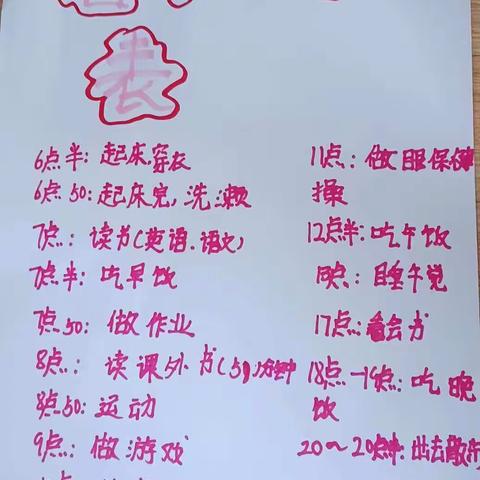 表
6点半:起床.穿衣
6点50:起床完,洗漱
7点:读书(英语.语文)
7点半:吃早饭
7点50:做作业
8点:读课外书(50分钟
8点50:运动
9点:做游戏
11点:做眼保健
操
12点半:吃午饭
点:睡午觉
17点:看会书
18点-19点:吃晚
饭
20~20点:出去散